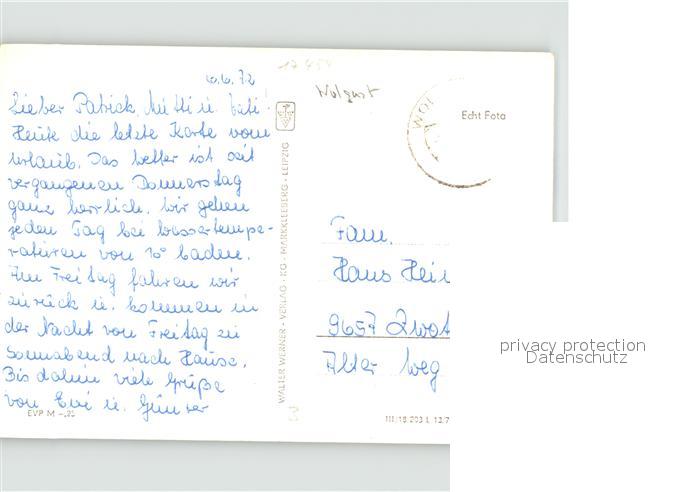 6.6.72
Lieber Patrick, Mutti u. Vati!
Heute die letzte Karte vom
Urlaub. Das Wetter ist seit
vergangenen Donnerstag
ganz herrlich. Wir gehen
jeden Tag bei Wassertempe-
raturen von 15° baden.
Am Freitag fahren wir
zurück u. kommen in
der Nacht von Freitag zu
Sonnabend nach Hause.
Bis dahin viele Grüße
von Evi u. Günter
EVP M -,25
WALTER WERNER - VERLAG - KG - MARKKLEEBERG - LEIPZIG
17454
Wolgast
WOL
Echt Foto
Fam.
Hans Hein
9657 Zwot
Alter Weg
III/18/203 L 13/7
3
privacy protection
Datenschutz